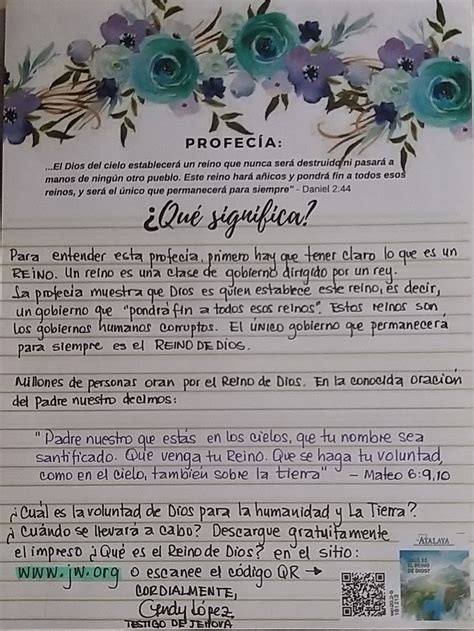 PROFECÍA:
...El Dios del cielo establecerá un reino que nunca será destruido ni pasará a
manos de ningún otro pueblo. Este reino hará añicos y pondrá fin a todos esos
reinos, y será el único que permanecerá para siempre" - Daniel 2:44
¿Qué significa?
Para entender esta profecía, primero hay que tener claro lo que es un
REINO. Un reino es una clase de gobierno dirigido por un rey.
La profecía muestra que Dios es quien establece este reino, es decir,
un gobierno que "pondrá fin a todos esos reinos". Estos reinos son
los gobiernos humanos corruptos. El ÚNICO gobierno que permanecerá
para siempre es el REINO DE DIOS.
Millones de personas oran por el Reino de Dios. En la conocida oración
del Padre nuestro decimos:
"Padre nuestro que estás en los cielos, que tu nombre sea
santificado. Que venga tu Reino. Que se haga tu voluntad,
como en el cielo, también sobre la tierra" - Mateo 6:9,10
¿Cuál es la voluntad de Dios para la humanidad y La Tierra?
¿Cuándo se llevará a cabo? Descargue gratuitamente
el impreso ¿Qué es el Reino de Dios? en el sitio:
www.jw.org o escanee el código QR →
CORDIALMENTE,
Cendy López
TESTIGO DE JEHOVÁ
ATALAYA
¿QUÉ ES
EL REINO
DE DIOS?